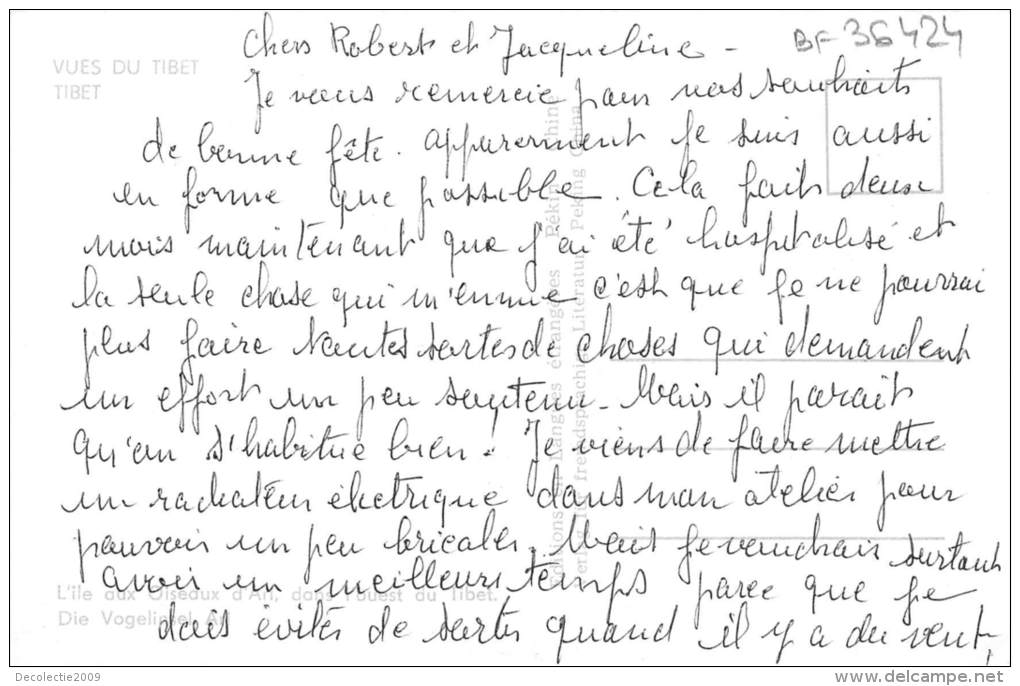 BF 36424
Chers Robert et Jacqueline -
VUES DU TIBET
TIBET
Je vous remercie pour vos souhaits
de bonne fête. Apparemment je suis aussi
en forme que possible. Cela fait deux
mois maintenant que j'ai été hospitalisé et
la seule chose qui m'ennuie c'est que je ne pourrai
plus faire toutes sortes de choses qui demandent
un effort un peu soutenu - Mais il parait
qu'on s'habitue bien. Je viens de faire mettre
un radiateur électrique dans mon atelier pour
pouvoir un peu bricoler. Mais je voudrais surtout
avoir un meilleur temps parce que je
dois éviter de sortir quand il y a du vent,
L'île aux Oiseaux d'Ari, dans l'ouest du Tibet.
Die Vogelinsel Ari
Editions en langues étrangères Pékin Chine
Verlag für fremdsprachige Literatur Peking China
Decolectie2009
delcampe.net